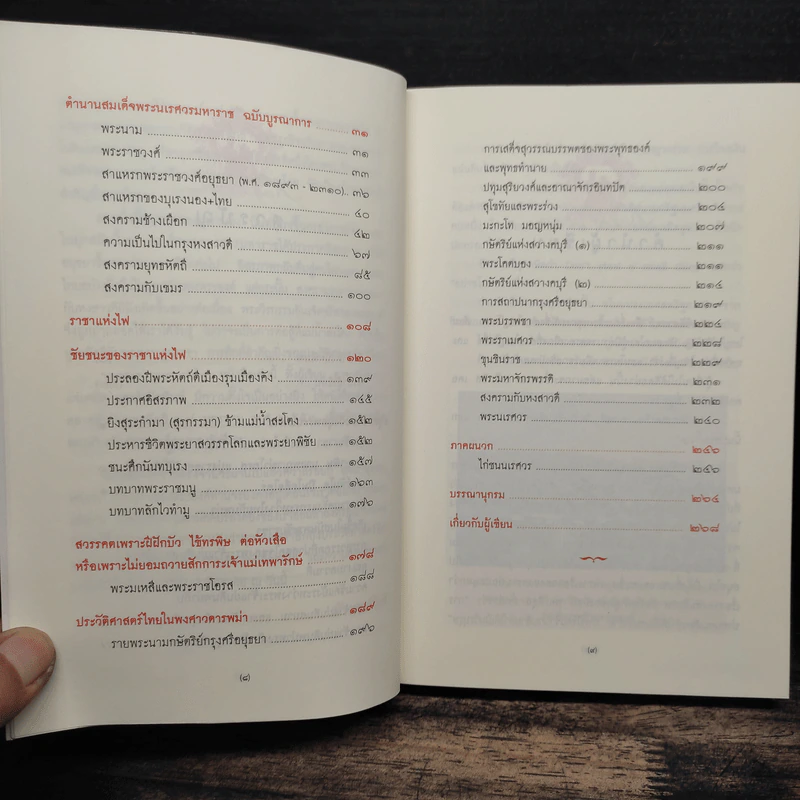 ตำนานสมเด็จพระนเรศวรมหาราช ฉบับบูรณาการ ........ ๓๑
พระนาม ........ ๓๑
พระราชวงศ์ ........ ๓๓
สาแหรกพระราชวงศ์อยุธยา (พ.ศ. ๑๘๙๓ - ๒๓๑๐).. ๓๖
สาแหรกของบุเรงนอง+ไทย ........ ๔๐
สงครามช้างเผือก ........ ๔๒
ความเป็นไปในกรุงหงสาวดี ........ ๖๗
สงครามยุทธหัตถี ........ ๘๕
สงครามกับเขมร ........ ๑๐๐
ราชาแห่งไฟ ........ ๑๐๘
ชัยชนะของราชาแห่งไฟ ........ ๑๒๐
ประลองฝีพระหัตถ์ตีเมืองรุมเมืองคัง ........ ๑๓๙
ประกาศอิสรภาพ ........ ๑๔๕
ยิงสุระกำมา (สุรกรรมา) ข้ามแม่น้ำสะโตง ........ ๑๕๒
ประหารชีวิตพระยาสวรรคโลกและพระยาพิชัย ........ ๑๕๒
ชนะศึกนันทบุเรง ........ ๑๕๗
บทบาทพระราชมนู ........ ๑๖๓
บทบาทลักไวทำมู ........ ๑๗๖
สวรรคตเพราะฝีฝักบัว ไข้ทรพิษ ต่อหัวเสือ
หรือเพราะไม่ยอมถวายสักการะเจ้าแม่เทพารักษ์ ........ ๑๗๘
พระมเหสีและพระราชโอรส ........ ๑๘๘
ประวัติศาสตร์ไทยในพงศาวดารพม่า ........ ๑๘๙
รายพระนามกษัตริย์กรุงศรีอยุธยา ........ ๑๙๖
(๘)
การเสด็จสุวรรณบรรพตของพระพุทธองค์
และพุทธทำนาย ........ ๑๙๙
ปทุมสุริยวงศ์และอาณาจักรอินทปัต ........ ๒๐๐
สุโขทัยและพระร่วง ........ ๒๐๔
มะกะโท มอญหนุ่ม ........ ๒๐๗
กษัตริย์แห่งสวางคบุรี (๑) ........ ๒๑๑
พระโคตบอง ........ ๒๑๑
กษัตริย์แห่งสวางคบุรี (๒) ........ ๒๑๔
การสถาปนากรุงศรีอยุธยา ........ ๒๑๙
พระบรรพชา ........ ๒๒๔
พระราเมศวร ........ ๒๒๘
ขุนชินราช ........ ๒๒๙
พระมหาจักรพรรดิ ........ ๒๓๑
สงครามกับหงสาวดี ........ ๒๓๒
พระนเรศวร ........ ๒๔๐
ภาคผนวก ........ ๒๕๖
ไก่ชนนเรศวร ........ ๒๕๖
บรรณานุกรม ........ ๒๖๔
เกี่ยวกับผู้เขียน ........ ๒๖๘
(๙)